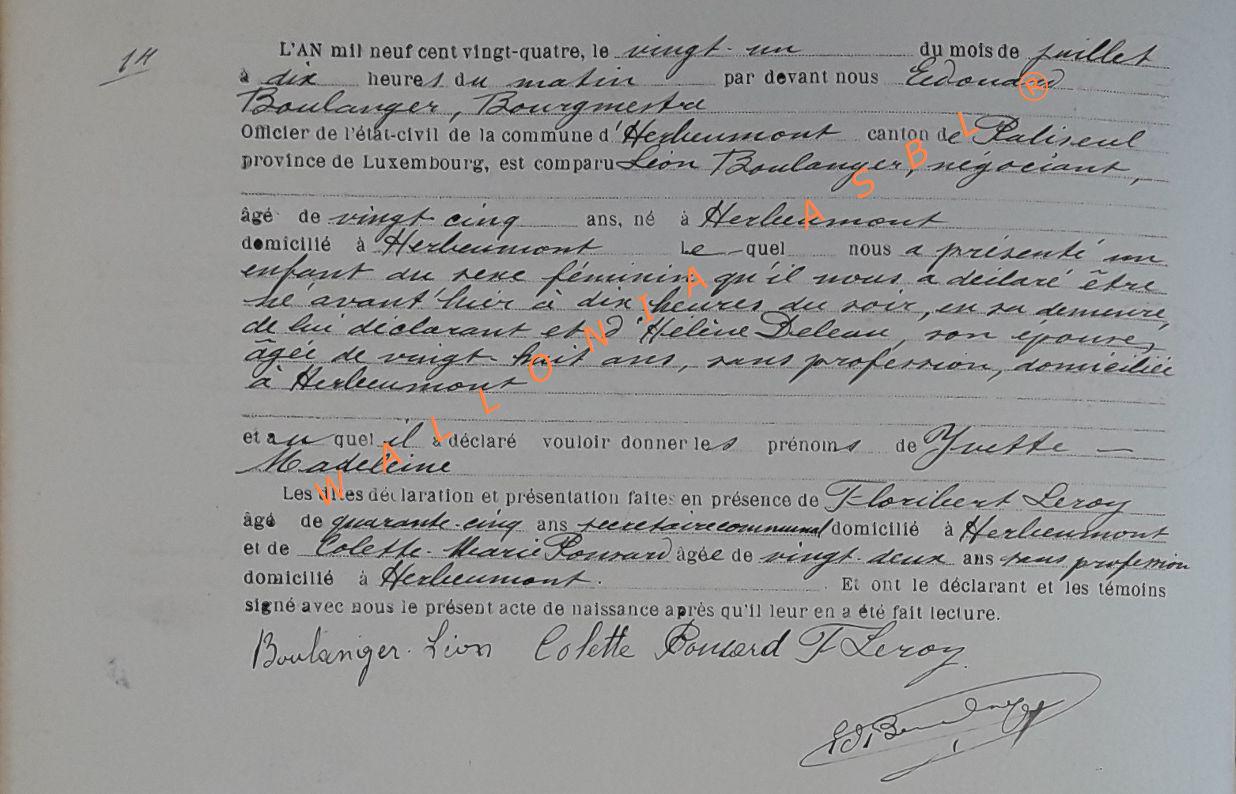 14
L'AN mil neuf cent vingt-quatre, le vingt-un du mois de juillet
à dix heures du matin par devant nous Edouard
Boulanger, Bourgmestre
Officier de l'état-civil de la commune d'Herbeumont canton de Paliseul
province de Luxembourg, est comparu Léon Boulanger, négociant,
âgé de vingt cinq ans, né à Herbeumont
domicilié à Herbeumont Lequel nous a présenté un
enfant du sexe féminin qu'il nous a déclaré être
né avant hier à dix heures du soir, en sa demeure,
de lui déclarant et d'Hélène Deleau, son épouse,
âgée de vingt-huit ans, sans profession, domiciliée
à Herbeumont
et au quel il a déclaré vouloir donner les prénoms de Yvette –
Madeleine
Les dites déclaration et présentation faites en présence de Floribert Leroy
âgé de quarante-cinq ans secrétaire communal domicilié à Herbeumont
et de Colette-Marie Ponsard âgée de vingt-deux ans sans profession
domicilié à Herbeumont. Et ont le déclarant et les témoins
signé avec nous le présent acte de naissance après qu'il leur en a été fait lecture.
Boulanger. Léon Colette Ponsard F Leroy.
Ed. Boulanger
WALLONIA ASBL ®